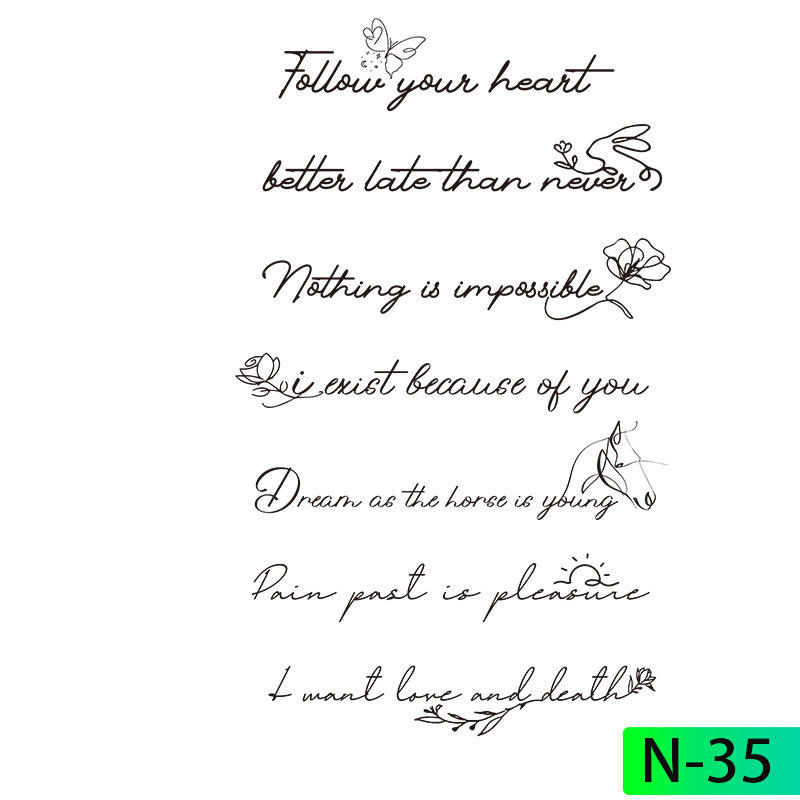 Follow your heart
better late than never
Nothing is impossible
i exist because of you
Dream as the horse is young
Pain past is pleasure
I want love and death
N-35